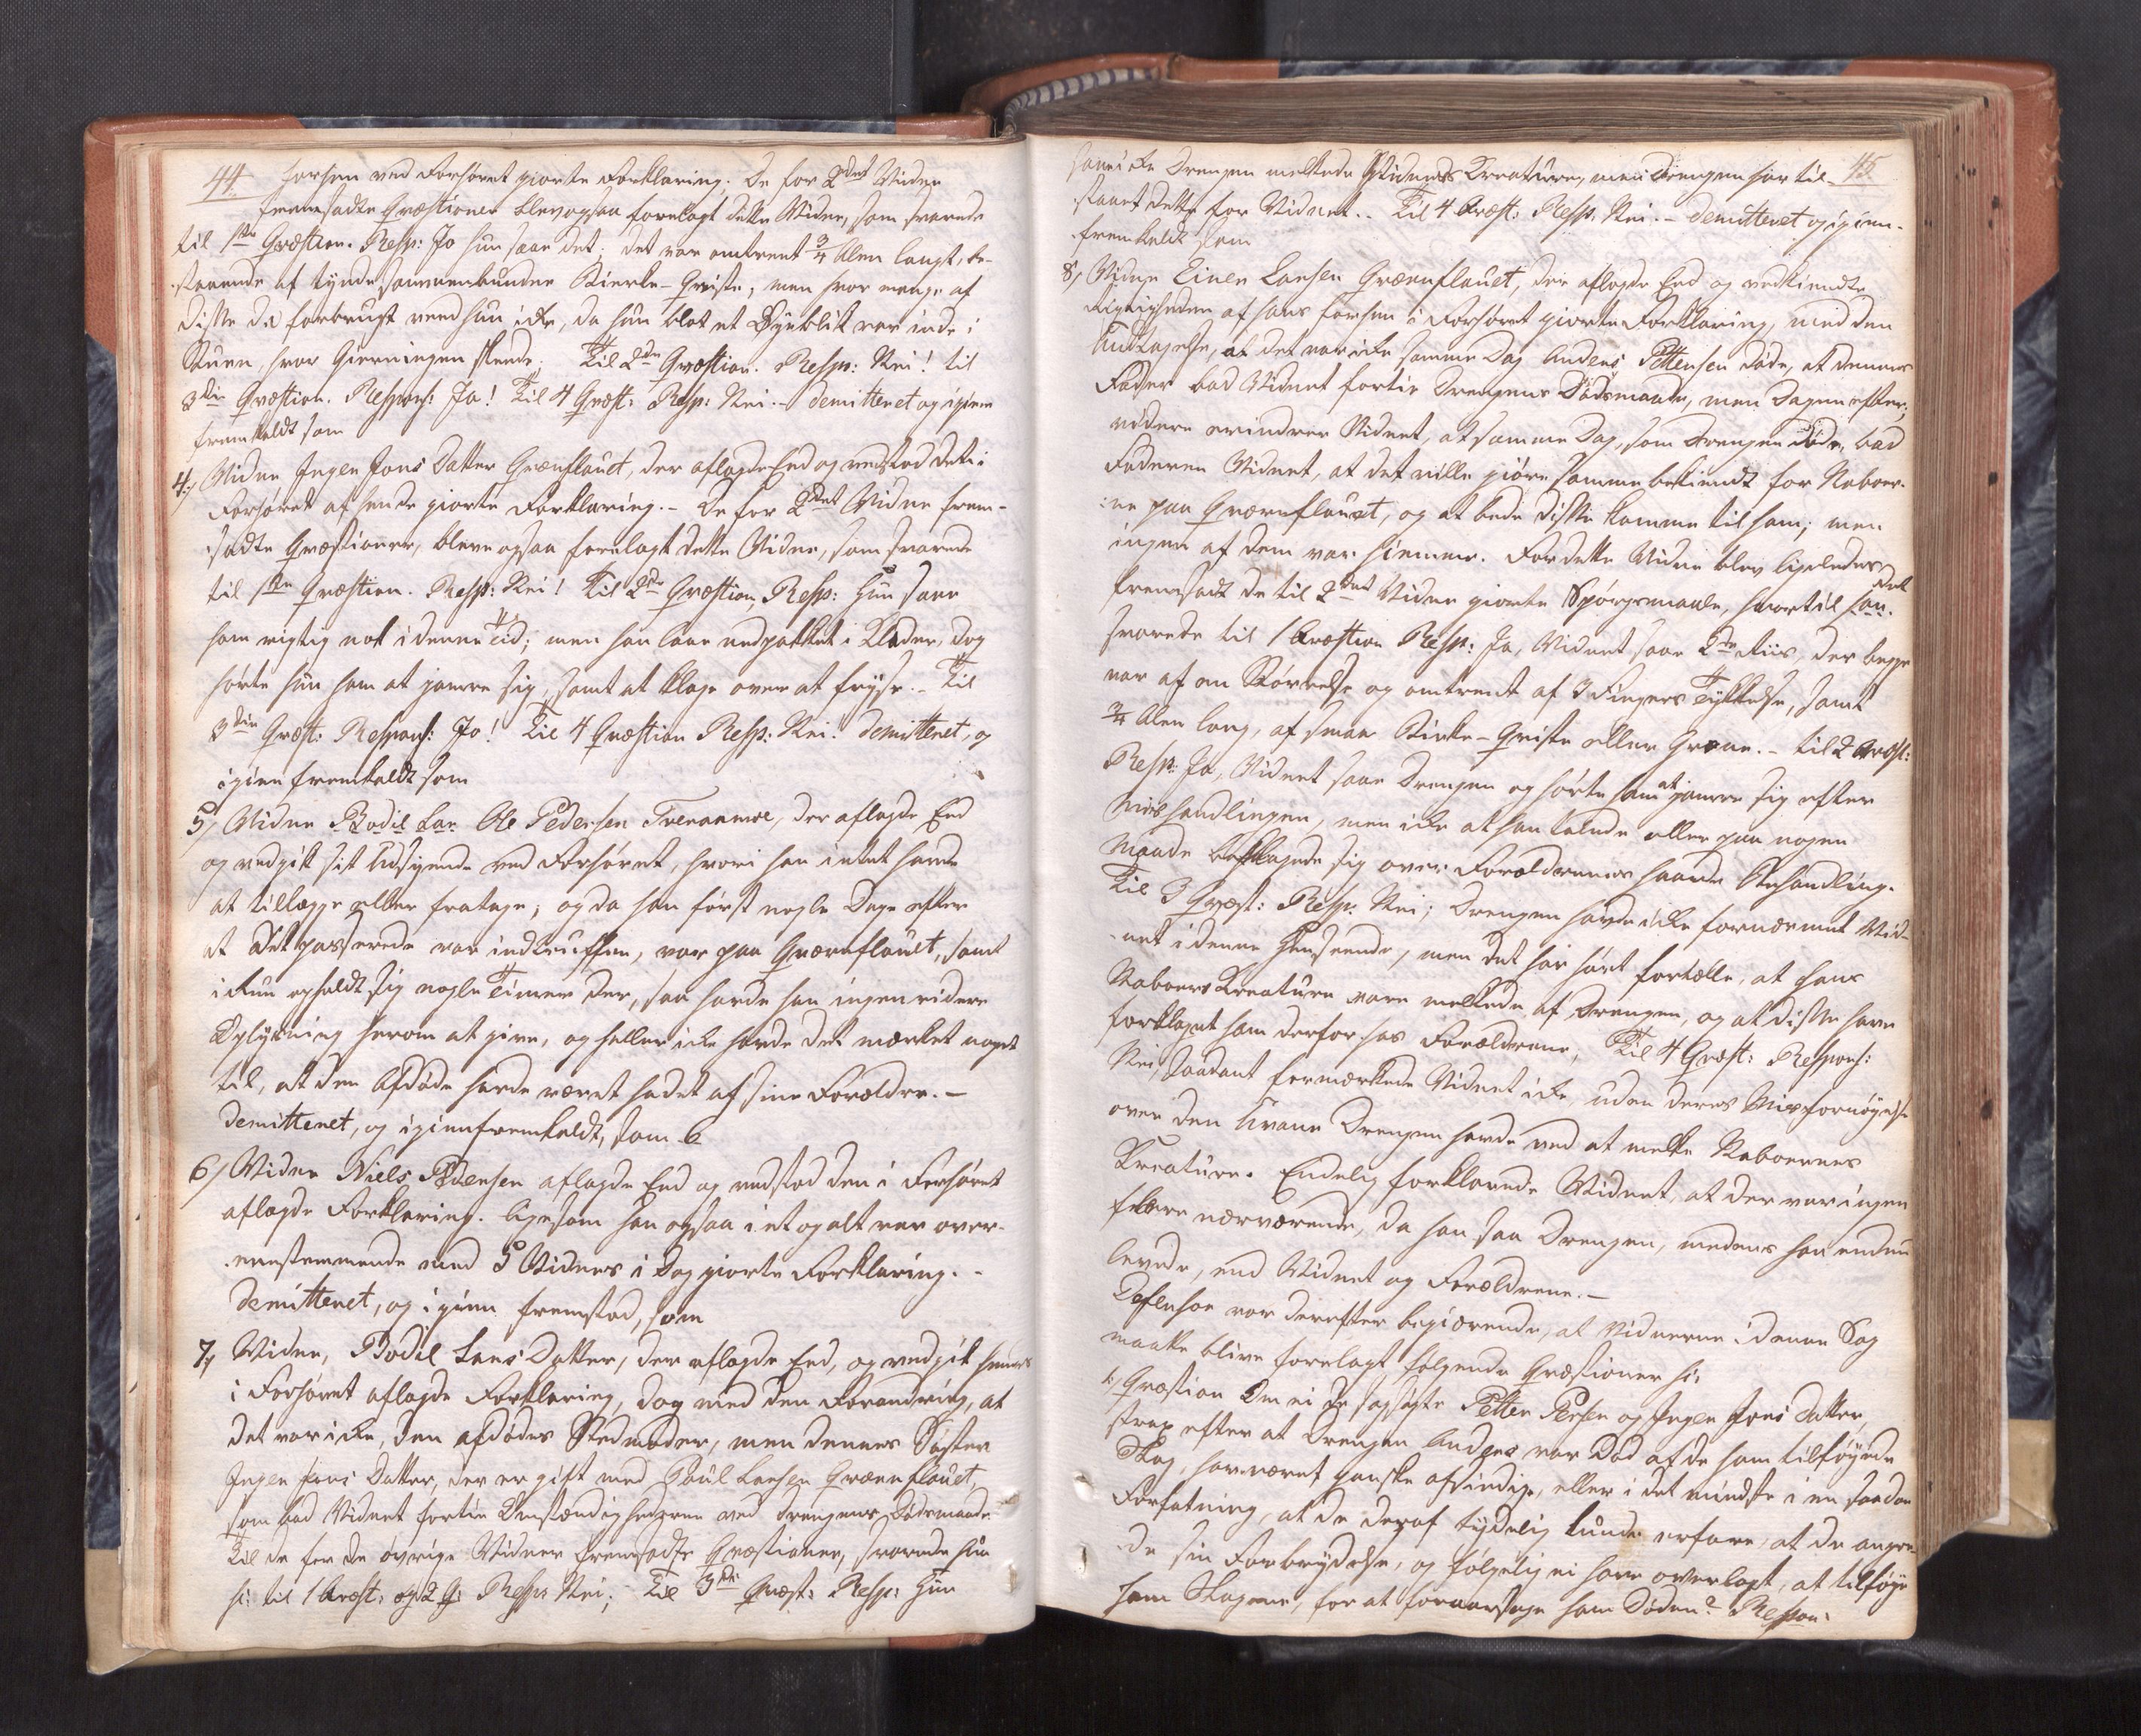 44.
forhen ved Forhøret giorte Forklaring. De for 2det Vidne
fremsadte Qvæstioner blev ogsaa forelagt dette Vidne, som svarede
til 1ste Qvæstion. Resp: Jo hun saae det; det var omtrent 3/4 Alen langt, be-
staaende af tynde sammenbundne Birke-Qviste, men hvor mange af
disse då forbrugt veed hun icke, da hun blot et Øyeblik var inde i
Stuen, hvor Gierningen skeede. Til 2den Qvæstion. Resp: Nei! til
3die Qvæstion. Respons: Ja! Til 4 Qvæst: Resp: Nei.- demitteret og igien
fremkaldt som
4) Vidne Inger Jons Datter Qvænflauet, der aflagde Eed og vedstod det i
Forhøret af hende giorte Forklaring.- De for 2det Vidne frem-
sadte Qvæstioner, bleve ogsaa forelagt dette Vidne, som svarede
til 1ste Qvæstion. Resp: Nei! Til 2den Qvæstion, Resp: Hun saae
ham rigtig nok i denne Tid; men han laae nedpakket i Klæder, dog
hørte hun ham at jamre sig, samt at klage over at fryse.- Til
3die Qvæst: Respons: Jo! Til 4 Qvæstion Resp: Nei. demitteret, og
igien fremkaldt som
5) Vidne Bodil Lar. Ole Pedersen Tveraamoe, der aflagde Eed
og vedgik sit Udsigende ved Forhøret, hvori han intet havde
at tillægge eller fratage; og da han først nogle Dage efter
at det passerede var indtruffen, var paa Qvænflauet, samt
ikun opholdt sig nogle Timer der, saa havde han ingen videre
Oplysning herom at give, og heller icke havde det mærket noget
til, at den Afdøde havde været hadet af sine Forældre.-
demitteret, og igienfremkaldt, som 6
6) Vidne Niels Pedersen aflagde Eed og vedstod den i Forhøret
aflagde Forklaring. ligesom han ogsaa i et og alt var over-
eensstemmende med 5 Vidnes i Dag giorte Forklaring.-
demitteret, og igien fremstod, som
7) Vidne, Bodil Lars Datter, der aflagde Eed, og vedgik hendes
i Forhøret aflagde Forklaring, dog med den Forandring, at
det var icke, den afdødes Stedmoder, men dennes Søster
Inger Jons Datter, der er gift med Poul Larsen Qvænflauet,
som bad Vidnet fortie Omstændighederne ved Drengens Dødsmaade.
Til de for de øvrige Vidner fremsadte Qvæstioner, svarede hun
s: til 1 Qvæst: og 2 Q: Resp: Nei; Til 3die Qvæst: Resp: Hun
45.
saae icke Drengen melkede Vidnets Creature, men Drengen har til-
staaet dette for Vidnet.- Til 4 Qvæst: Resp: Nei.- demitteret og igien-
fremkaldt som
8) Vidne Einer Larsen Qvænflauet, der aflagde Eed og vedkiendte
Rigtigheden af hans forhen i Forhøret giorte Forklaring, med den
Undtagelse, at det var icke samme Dag Anders Pettersen døde, at dennes
Fader bad Vidnet fortie Drengens Dødsmaade, men Dagen efter;
videre erindrer Vidnet, at samme Dag, som Drengen døde, bad
Faderen Vidnet, at det ville giøre samme bekiendt for Naboer-
ne paa Qvænflauet, og at bede disse komme til ham; men
ingen af dem var hiemme. For dette Vidne blev ligeledes
fremsadt de til 2det Vidne giorte Spørgsmaale, hvortil det
svarede til 1 Qvæstion Resp: Ja, Vidnet saae 2de Riis, der begge
var af en Størrelse og omtrent af 3 Fingers Tykkelse, samt
3/4 Alen lang, af smaa Birke-Qviste eller Grene.- til 2 Qvæst:
Resp: Ja, Vidnet saae Drengen og hørte ham at jamre sig efter
Mishandlingen, men icke at han talede eller paa nogen
Maade beklagede sig over Forældrenes haarde Behandling.
Til 3 Qvæst: Resp: Nei; Drengen havde icke fornærmet Vid-
net i denne Henseende, men det har hørt fortælle, at hans
Naboers Creature vare melkede af Drengen, og at disse have
forklaget ham derfor hos Forældrene, Til 4 Qvæst: Respons:
Nei, saadant formærkede Vidnet icke, uden deres Misfornøyelse
over den Uvane Drengen havde ved at melke Naboernes
Creature. Endelig forklarede Vidnet, at der var ingen
fleere nærværende, da han saa Drengen, medens han endnu
levede, end Vidnet og Forældrene.-
Defensor var derefter begiærende, at Vidnerne i denne Sag
maatte blive forelagt følgende Qvæstioner s:
1) Qvæstion Om ei de sagsøgte Petter Persen og Inger Jons Datter,
strax efter at Drengen Anders var Død af de ham tilføyede
Slag, har været ganske afsindige, eller i det mindste i en saadan
Forfatning, at de deraf tydelig kunde erfare, at de angre-
de sin Forbrydelse, og følgelig ei have overlagt, at tilføye
ham Slagene, for at foraarsage ham Døden? Respon: